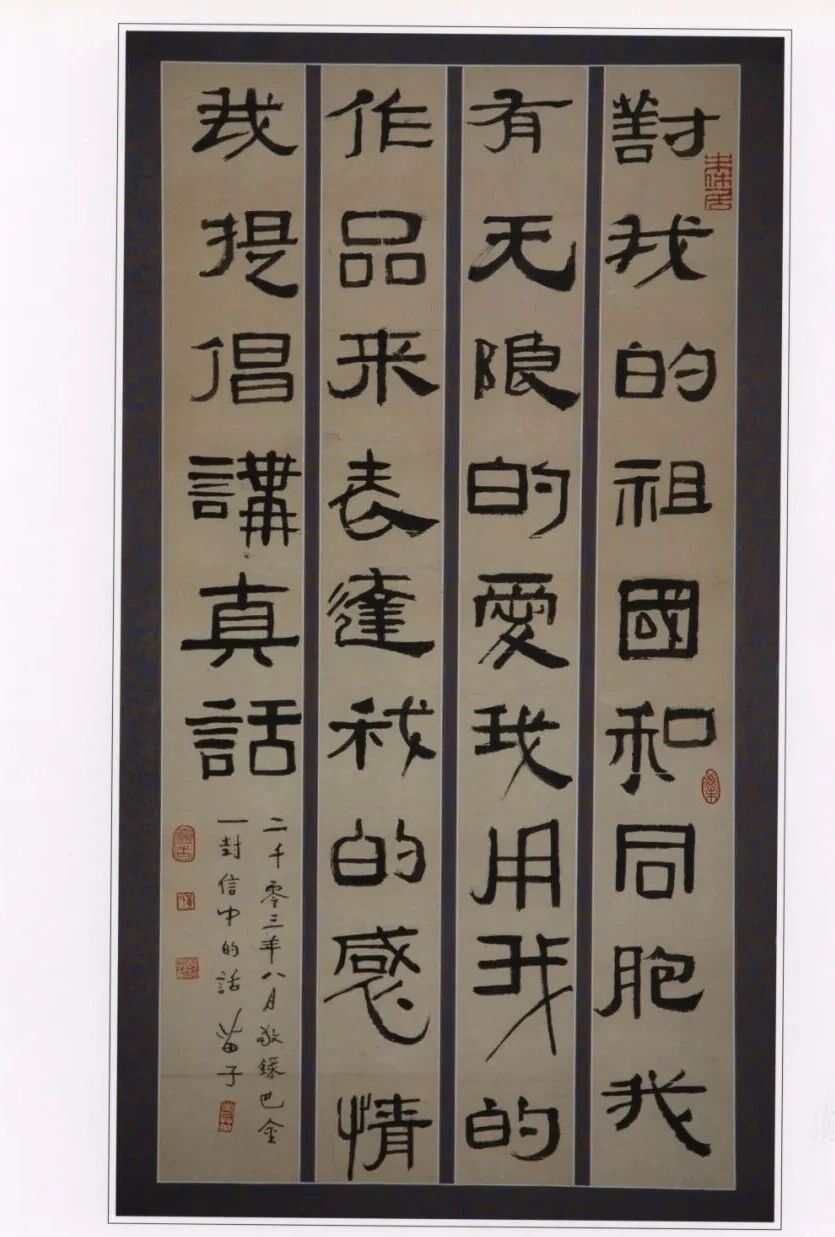 對我的祖國和同胞我
有无限的愛我用我的
作品来表達我的感情
我提倡講真話
二千零三年八月敬録巴金
一封信中的話 苗子